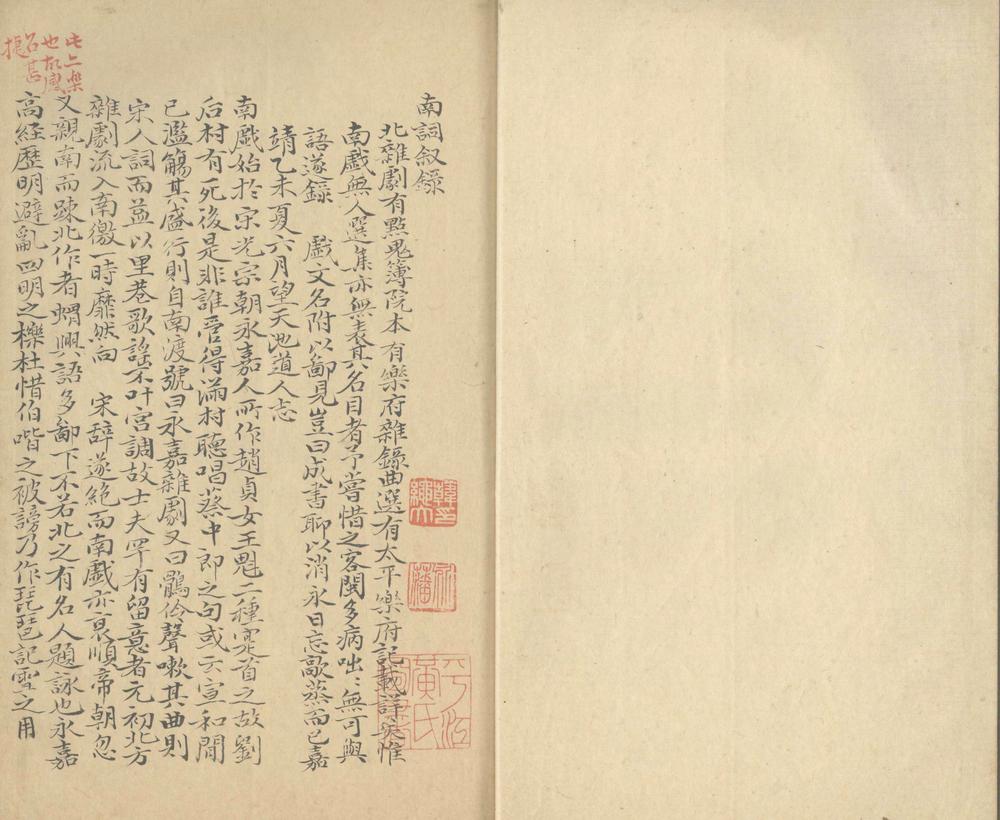 南詞叙錄
北雜劇有點鬼簿院本有樂府雜錄曲選有太平樂府記載詳矣惟
南戲無人選集亦無表其名目者予嘗惜之客閩多病咄〻無可與
語遂錄戲文名附以鄙見豈曰成書聊以消永日忘歊蒸而已嘉
靖乙未夏六月望天池道人志
南戲始於宋光宗朝永嘉人所作趙貞女王魁二種實首之故劉
后村有死後是非誰管得滿村聽唱蔡中郎之句或云宣和間
已濫觴其盛行則自南渡號曰永嘉雜劇又曰鶻伶聲嗽其曲則
宋人詞而益以里巷歌謠不叶宮調故士夫罕有留意者元初北方
雜劇流入南徼一時靡然向宋辭遂絕而南戲亦衰順帝朝忽
又親南而踈北作者蝟興語多鄙下不若北之有名人題詠也永嘉
高經歷明避亂四明之櫟社惜伯喈之被謗乃作琵琶記雪之用
韓氏
藩
平江
黃氏